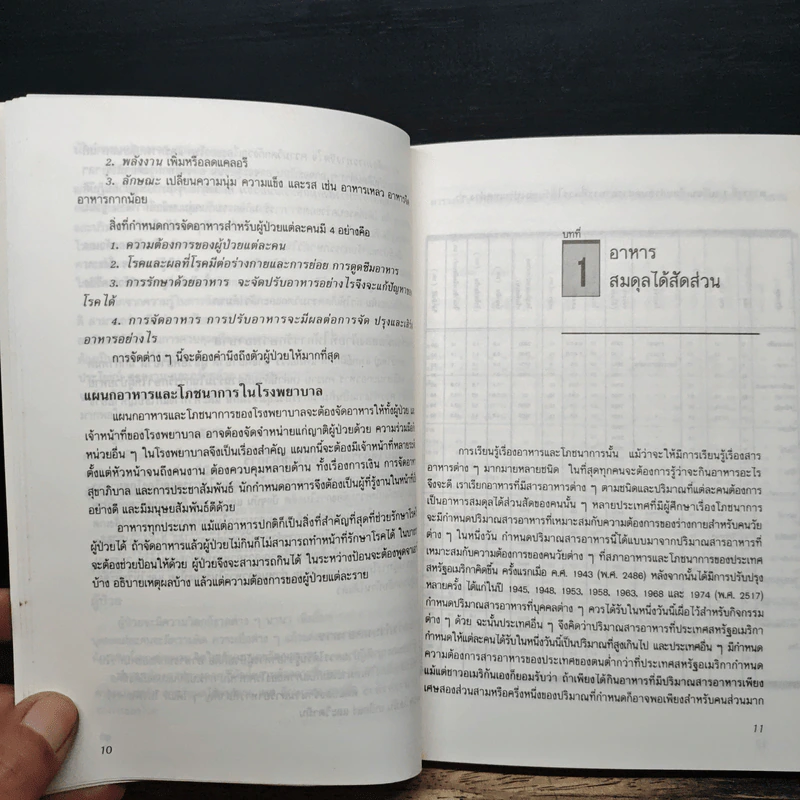 2. พลังงาน เพิ่มหรือลดแคลอรี
3. ลักษณะ เปลี่ยนความนุ่ม ความแข็ง และรส เช่น อาหารเหลว
อาหารกากน้อย
สิ่งที่กำหนดการจัดอาหารสำหรับผู้ป่วยแต่ละคนมี 4 อย่างคือ
1. ความต้องการของผู้ป่วยแต่ละคน
2. โรคและผลที่โรคมีต่อร่างกายและการย่อย การดูดซึมอาหาร
3. การรักษาด้วยอาหาร จะจัดปรับอาหารอย่างไรจึงจะแก้ปัญหา
โรคได้
4. การจัดอาหาร การปรับอาหารจะมีผลต่อการจัด ปรุงและ
อาหารอย่างไร
การจัดต่าง ๆ นี้จะต้องคำนึงถึงตัวผู้ป่วยให้มากที่สุด
แผนกอาหารและโภชนาการในโรงพยาบาล
แผนกอาหารและโภชนาการของโรงพยาบาลจะต้องจัดอาหารให้ทั้งผู้ป่วย
เจ้าหน้าที่ของโรงพยาบาล อาจต้องจัดจำหน่ายแก่ญาติผู้ป่วยด้วย ความร่วมมือ
หน่วยอื่น ๆ ในโรงพยาบาลจึงเป็นเรื่องสำคัญ แผนกนี้จะต้องมีเจ้าหน้าที่หลาย
ตั้งแต่หัวหน้าจนถึงคนงาน ต้องควบคุมหลายด้าน ทั้งเรื่องการเงิน การจัดอาหาร
สุขาภิบาล และการประชาสัมพันธ์ นักกำหนดอาหารจึงต้องเป็นผู้ที่รู้งานในหน้าที่
อย่างดี และมีมนุษยสัมพันธ์ดีด้วย
อาหารทุกประเภท แม้แต่อาหารปกติก็เป็นสิ่งที่สำคัญที่สุดที่ช่วยรักษาโรค
ผู้ป่วยได้ ถ้าจัดอาหารแล้วผู้ป่วยไม่กินก็ไม่สามารถทำหน้าที่รักษาโรคได้
จะต้องช่วยป้อนให้ด้วย ผู้ป่วยจึงจะสามารถกินได้ ในระหว่างป้อนจะต้องพูด
บ้าง อธิบายเหตุผลบ้าง แล้วแต่ความต้องการของผู้ป่วยแต่ละราย
10
บทที่
1
อาหาร
สมดุลได้สัดส่วน
การเรียนรู้เรื่องอาหารและโภชนาการนั้น แม้ว่าจะให้มีการเรียนรู้เรื่องสาร
อาหารต่าง ๆ มากมายหลายชนิด ในที่สุดทุกคนจะต้องการรู้ว่าจะกินอาหารอะไร
จึงจะดี เราเรียกอาหารที่มีสารอาหารต่าง ๆ ตามชนิดและปริมาณที่แต่ละคนต้องการ
เป็นอาหารสมดุลได้ส่วนสัดของคนนั้น ๆ หลายประเทศที่มีผู้ศึกษาเรื่องโภชนาการ
จะมีกำหนดปริมาณสารอาหารที่เหมาะสมกับความต้องการของร่างกายสำหรับคนวัย
ต่าง ๆ ในหนึ่งวัน กำหนดปริมาณสารอาหารนี้ได้แบบมาจากปริมาณสารอาหารที่
เหมาะสมกับความต้องการของคนวัยต่าง ๆ ที่สภาอาหารและโภชนาการของประเทศ
สหรัฐอเมริกาคิดขึ้น ครั้งแรกเมื่อ ค.ศ. 1943 (พ.ศ. 2486) หลังจากนั้นได้มีการปรับปรุง
หลายครั้ง ได้แก่ในปี 1945, 1948, 1953, 1958, 1963, 1968 และ 1974 (พ.ศ. 2517)
กำหนดปริมาณสารอาหารที่บุคคลต่าง ๆ ควรได้รับในหนึ่งวันนี้เผื่อไว้สำหรับกิจกรรม
ต่าง ๆ ด้วย ฉะนั้นประเทศอื่น ๆ จึงคิดว่าปริมาณสารอาหารที่ประเทศสหรัฐอเมริกา
กำหนดให้แต่ละคนได้รับในหนึ่งวันนี้เป็นปริมาณที่สูงเกินไป และประเทศอื่น ๆ มีกำหนด
ความต้องการสารอาหารของประเทศของตนต่ำกว่าที่ประเทศสหรัฐอเมริกากำหนด
แม้แต่ชาวอเมริกันเองก็ยอมรับว่า ถ้าเพียงได้กินอาหารที่มีปริมาณสารอาหารเพียง
เศษสองส่วนสามหรือครึ่งหนึ่งของปริมาณที่กำหนดก็อาจพอเพียงสำหรับคนส่วนมาก
11